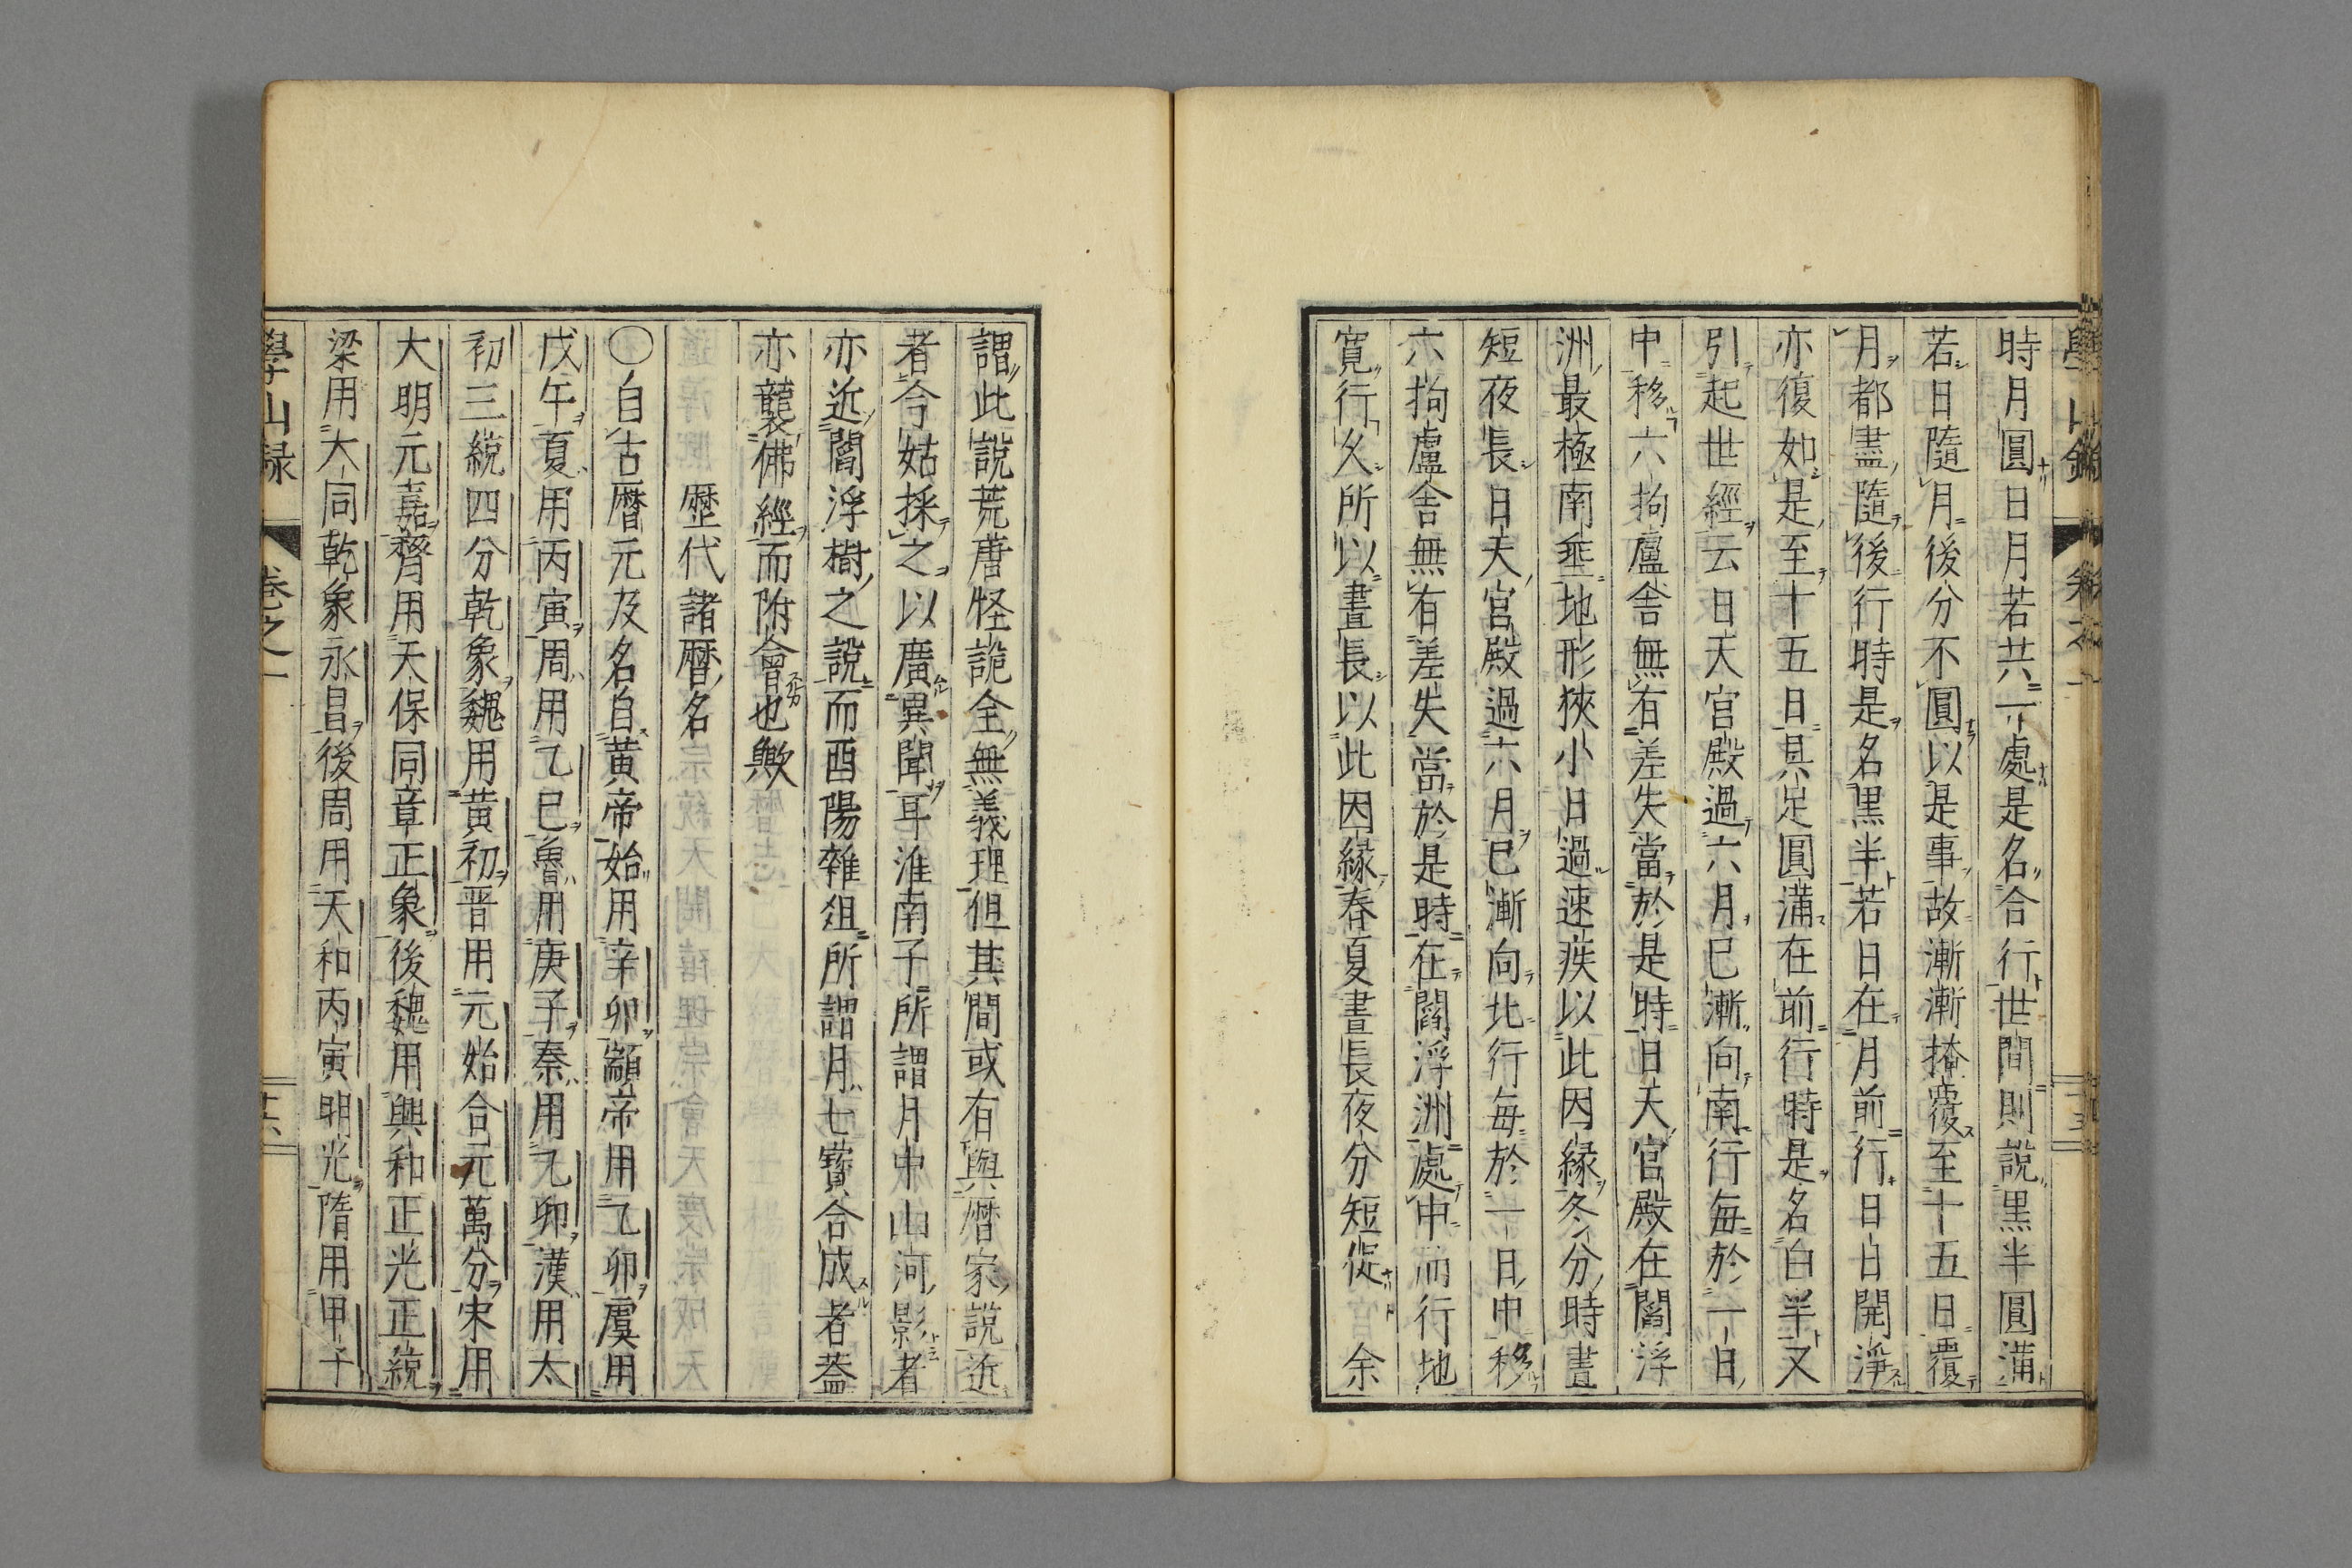 時月圓日月若共一處是名合行世間則說黒半圓滿
若日隨月後分不圓以是事故漸漸掩覆至十五日覆
月都盡隨後行時是名黒半若日在月前行日日開淨
亦復如是至十五日具足圓滿在前行時是名白半又
引起世經云日天宮殿過六月已漸向南行每於一日
中移六拘盧舍無有差失當於是時日天宮殿在閻浮
洲最極南垂地形狹小日過速疾以此因緣冬分時晝
短夜長日天宮殿過六月已漸向北行每於一日中移
六拘盧舍無有差失當於是時在閻浮洲處中而行地
寛行久所以晝長以此因緣春夏晝長夜分短促　余
謂此說荒唐怪詭全無義理但其間或有與曆家說近
者今姑採之以廣異聞耳淮南子所謂月中山河影者
亦近閻浮樹之說而酉陽雜俎所謂月七寶合成者蓋
亦襲佛經而附會也歟
歷代諸曆名
〇自古曆元及名自黃帝始用辛卯顓帝用乙卯虞用
戊午夏用丙寅周用乙巳魯用庚子秦用乙卯漢用太
初三統四分乾象魏用黃初晋用元始合元萬分宋用
大明元嘉齊用天保同章正象後魏用興和正光正統
梁用大同乾象永昌後周用天和丙寅明光隋用甲子
學山録　卷之一　十六